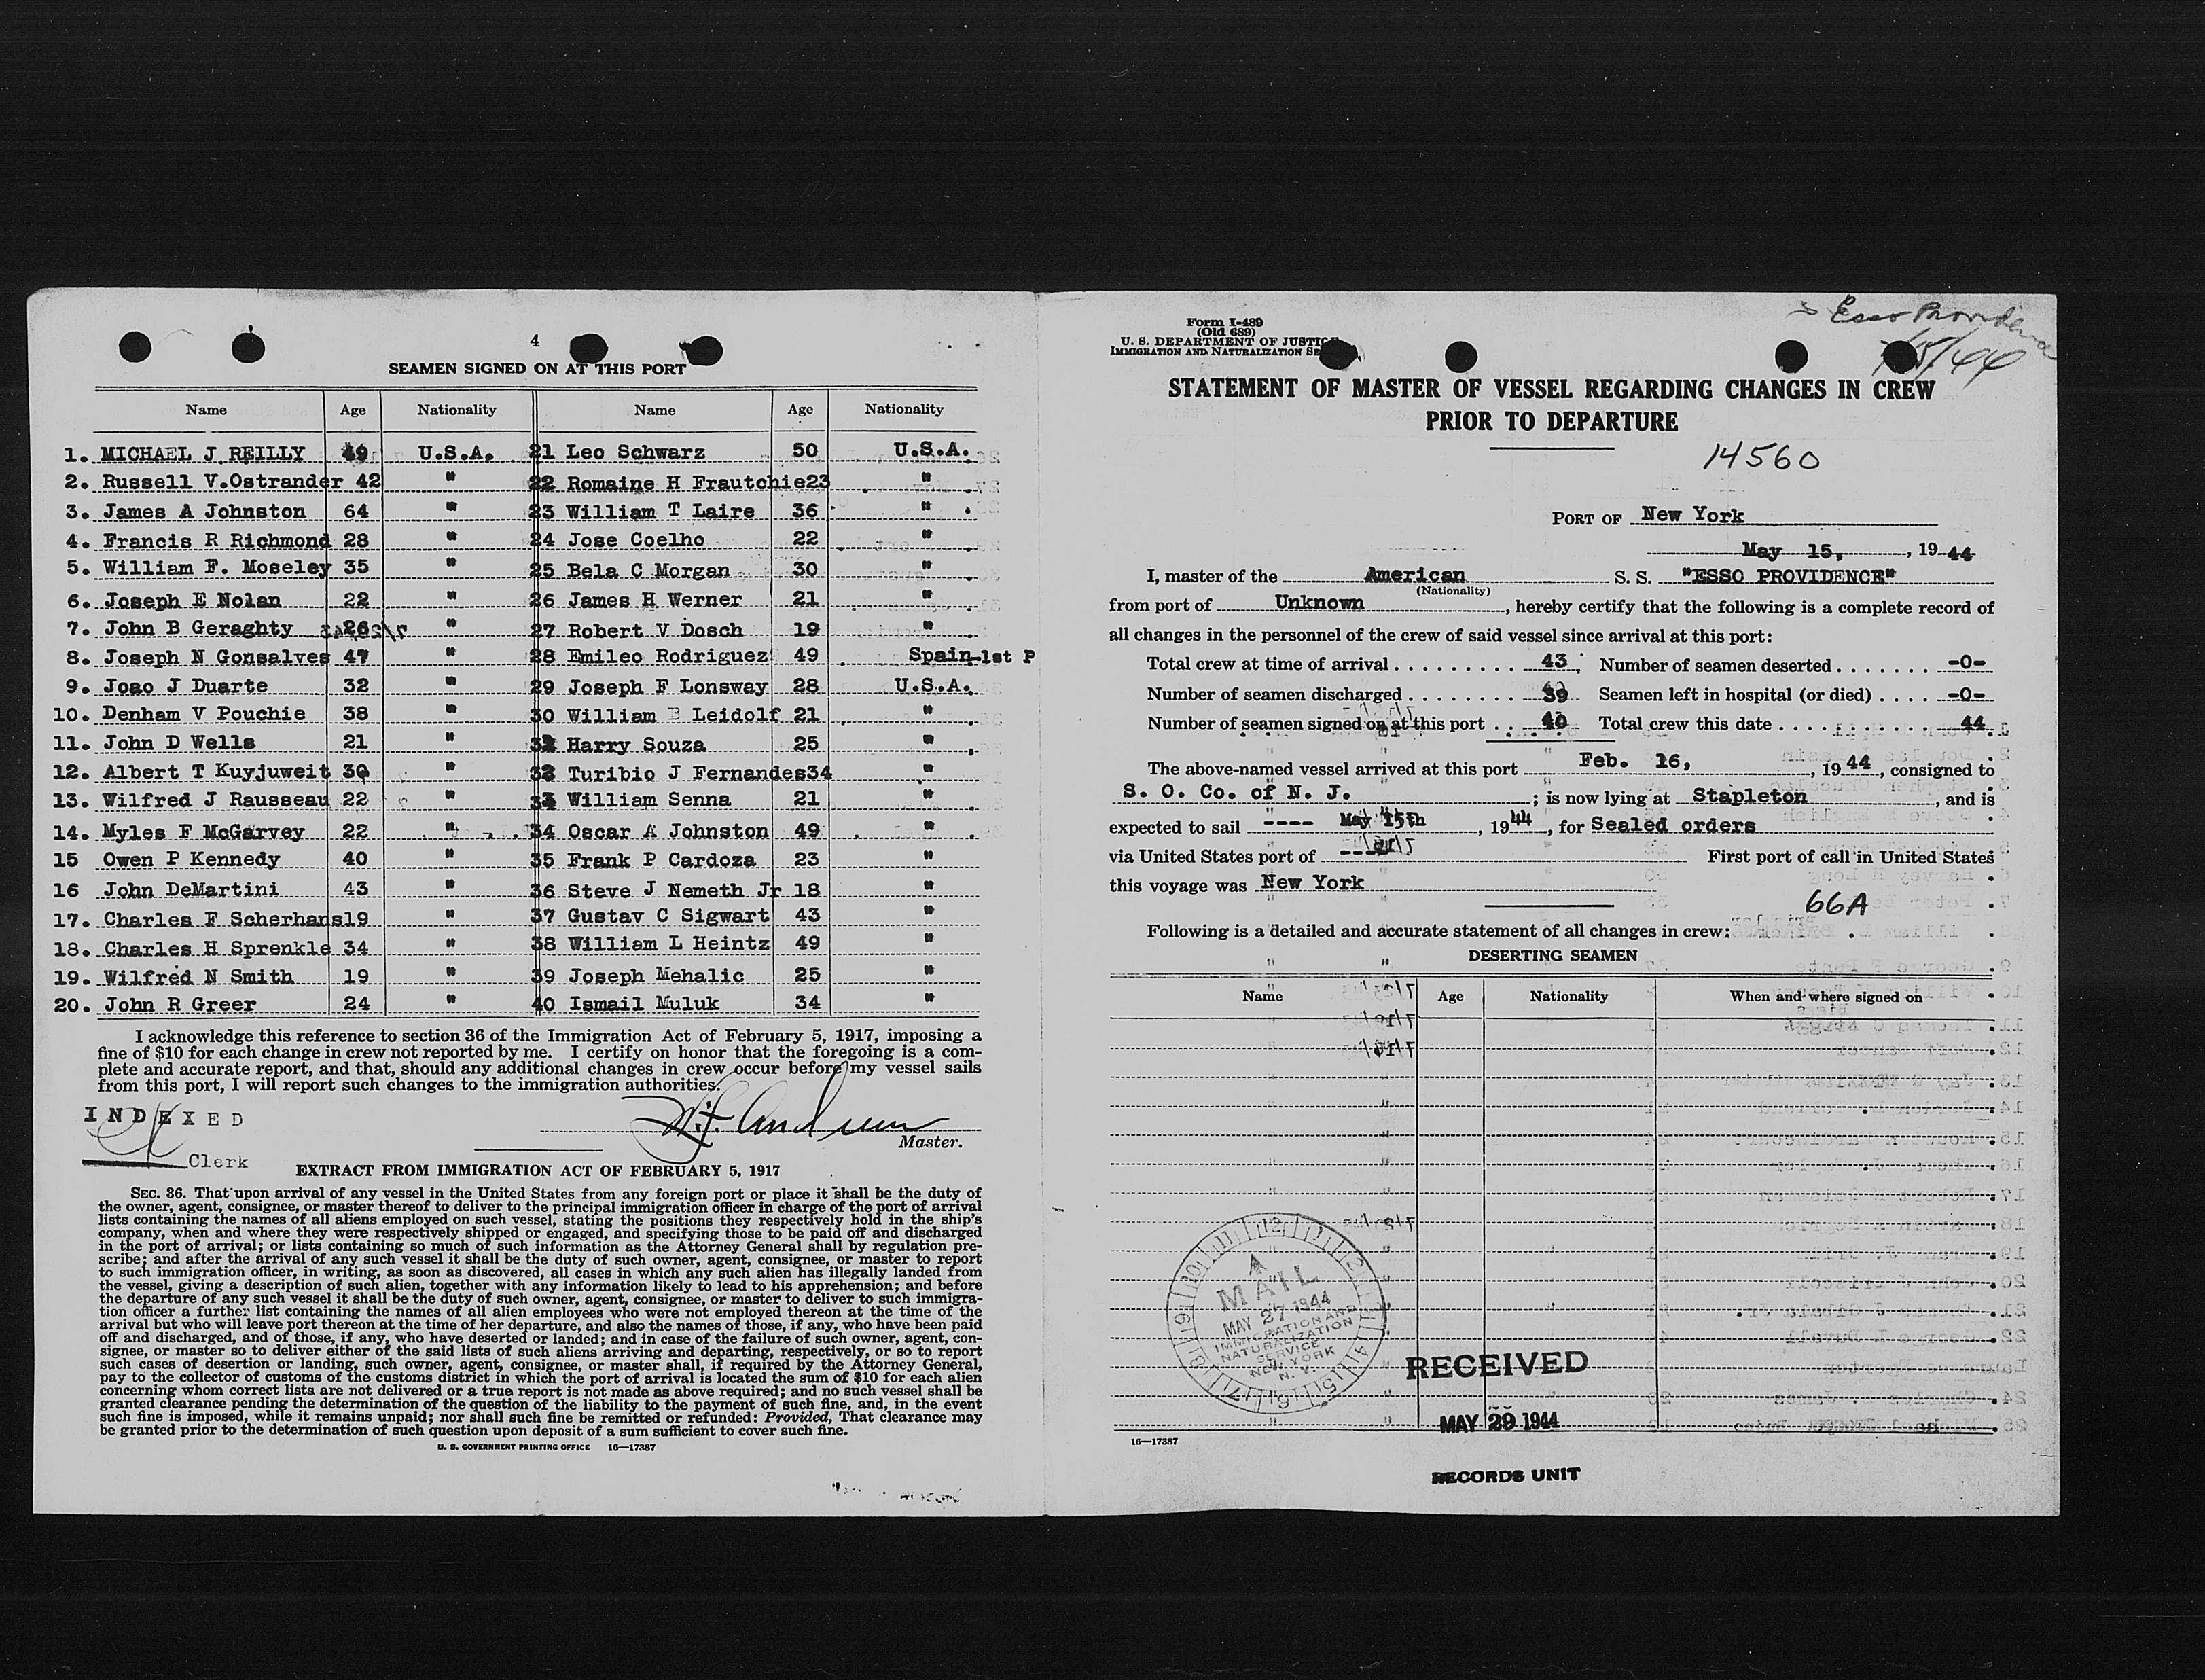 4
SEAMEN SIGNED ON AT THIS PORT
Name Age Nationality Name Age Nationality
1. MICHAEL J REILLY 49 U.S.A. 21 Leo Schwarz 50 U.S.A.
2. Russell V.Ostrander 42 " 22 Romaine H Frautchie 23 "
3. James A Johnston 64 " 23 William T Laire 36 "
4. Francis R Richmond 28 " 24 Jose Coelho 22 "
5. William F. Moseley 35 " 25 Bela C Morgan 30 "
6. Joseph E Nolan 22 " 26 James H Werner 21 "
7. John B Geraghty 26 " 27 Robert V Dosch 19 "
8. Joseph N Gonsalves 47 " 28 Emileo Rodriguez 49 Spain-1st P
9. Joao J Duarte 32 " 29 Joseph F Lonsway 28 U.S.A.
10. Denham V Pouchie 38 " 30 William E Leidolf 21 "
11. John D Wells 21 " 31 Harry Souza 25 "
12. Albert T Kuyjuweit 30 " 32 Turibio J Fernandes 34 "
13. Wilfred J Rausseau 22 " 33 William Senna 21 "
14. Myles F McGarvey 22 " 34 Oscar A Johnston 49 "
15 Owen P Kennedy 40 " 35 Frank P Cardoza 23 "
16 John DeMartini 43 " 36 Steve J Nemeth Jr 18 "
17. Charles F Scherhans 19 " 37 Gustav C Sigwart 43 "
18. Charles H Sprenkle 34 " 38 William L Heintz 49 "
19. Wilfred N Smith 19 " 39 Joseph Mehalic 25 "
20. John R Greer 24 " 40 Ismail Muluk 34 "
I acknowledge this reference to section 36 of the Immigration Act of February 5, 1917, imposing a
fine of $10 for each change in crew not reported by me. I certify on honor that the foregoing is a com-
plete and accurate report, and that, should any additional changes in crew occur before my vessel sails
from this port, I will report such changes to the immigration authorities.
INDEXED
Master.
Clerk
EXTRACT FROM IMMIGRATION ACT OF FEBRUARY 5, 1917
SEC. 36. That upon arrival of any vessel in the United States from any foreign port or place it shall be the duty of
the owner, agent, consignee, or master thereof to deliver to the principal immigration officer in charge of the port of arrival
lists containing the names of all aliens employed on such vessel, stating the positions they respectively hold in the ship's
company, when and where they were respectively shipped or engaged, and specifying those to be paid off and discharged
in the port of arrival; or lists containing so much of such information as the Attorney General shall by regulation pre-
scribe; and after the arrival of any such vessel it shall be the duty of such owner, agent, consignee, or master to report
to such immigration officer, in writing, as soon as discovered, all cases in which any such alien has illegally landed from
the vessel, giving a description of such alien, together with any information likely to lead to his apprehension; and before
the departure of any such vessel it shall be the duty of such owner, agent, consignee, or master to deliver to such immigra-
tion officer a further list containing the names of all alien employees who were not employed thereon at the time of the
arrival but who will leave port thereon at the time of her departure, and also the names of those, if any, who have been paid
off and discharged, and of those, if any, who have deserted or landed; and in case of the failure of such owner, agent, con-
signee, or master so to deliver either of the said lists of such aliens arriving and departing, respectively, or so to report
such cases of desertion or landing, such owner, agent, consignee, or master shall, if required by the Attorney General,
pay to the collector of customs of the customs district in which the port of arrival is located the sum of $10 for each alien
concerning whom correct lists are not delivered or a true report is not made as above required; and no such vessel shall be
granted clearance pending the determination of the question of the liability to the payment of such fine, and, in the event
such fine is imposed, while it remains unpaid; nor shall such fine be remitted or refunded: Provided, That clearance may
be granted prior to the determination of such question upon deposit of a sum sufficient to cover such fine.
U. S. GOVERNMENT PRINTING OFFICE 16—17387
Esso Providence
Form I-489
(Old 689)
U. S. DEPARTMENT OF JUSTICE
IMMIGRATION AND NATURALIZATION SE
STATEMENT OF MASTER OF VESSEL REGARDING CHANGES IN CREW
PRIOR TO DEPARTURE
14560
PORT OF New York
May 15, , 19 44
I, master of the American S. S. "ESSO PROVIDENCE"
(Nationality)
from port of Unknown , hereby certify that the following is a complete record of
all changes in the personnel of the crew of said vessel since arrival at this port:
Total crew at time of arrival . . . . . . . . . . 43 Number of seamen deserted . . . . . . . -0-
Number of seamen discharged . . . . . . . . . 39 Seamen left in hospital (or died) . . . . -0-
Number of seamen signed on at this port . . . 40 Total crew this date . . . . . . . . . . . 44
The above-named vessel arrived at this port Feb. 16, , 19 44, consigned to
S. O. Co. of N. J. ; is now lying at Stapleton , and is
expected to sail ---- May 15th , 19 44, for Sealed orders
via United States port of ---- First port of call in United States
this voyage was New York
66A
Following is a detailed and accurate statement of all changes in crew:
DESERTING SEAMEN
Name Age Nationality When and where signed on
A
MAIL
MAY 27 1944
IMMIGRATION AND
NATURALIZATION
SERVICE
NEW YORK
N. Y.
RECEIVED
MAY 29 1944
16—17387
RECORDS UNIT